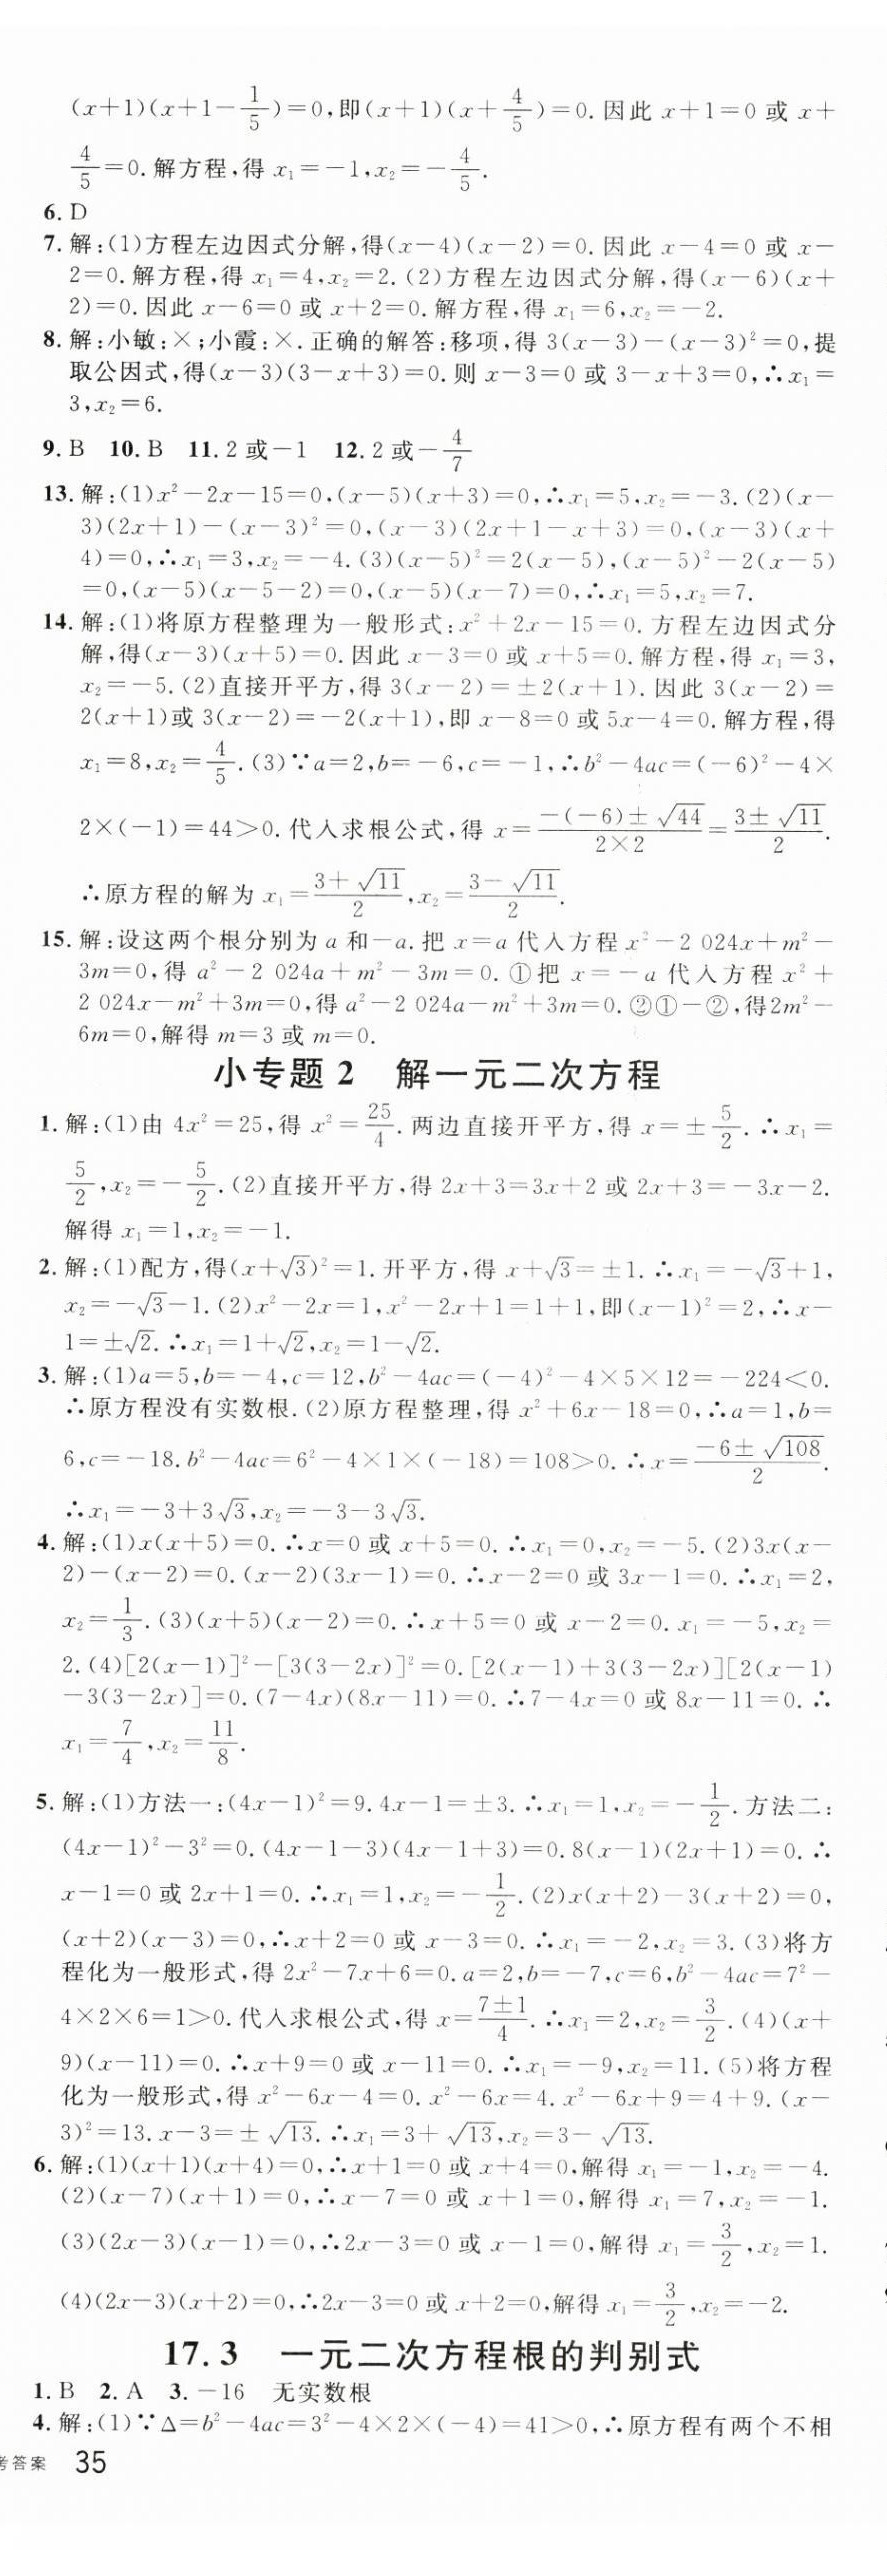 (x+1)(x+1-1/5)=0,即(x+1)(x+4/5)=0.因此 x+1=0 或 x+
4/5=0.解方程,得 x₁=-1,x₂=-4/5.
6. D
7. 解:(1)方程左边因式分解,得(x-4)(x-2)=0.因此 x-4=0 或 x-
2=0.解方程,得 x₁=4,x₂=2.(2)方程左边因式分解,得(x-6)(x+
2)=0.因此 x-6=0 或 x+2=0.解方程,得 x₁=6,x₂=-2.
8. 解:小敏:×;小霞:×.正确的解答:移项,得 3(x-3)-(x-3)²=0,提
取公因式,得(x-3)(3-x+3)=0.则 x-3=0 或 3-x+3=0,∴x₁=
3,x₂=6.
9. B 10. B 11. 2 或-1 12. 2 或-4/7
13. 解:(1)x²-2x-15=0,(x-5)(x+3)=0,∴x₁=5,x₂=-3.(2)(x-
3)(2x+1)-(x-3)²=0,(x-3)(2x+1-x+3)=0,(x-3)(x+
4)=0,∴x₁=3,x₂=-4.(3)(x-5)²=2(x-5),(x-5)²-2(x-5)
=0,(x-5)(x-5-2)=0,(x-5)(x-7)=0,∴x₁=5,x₂=7.
14. 解:(1)将原方程整理为一般形式:x²+2x-15=0.方程左边因式分
解,得(x-3)(x+5)=0.因此 x-3=0 或 x+5=0.解方程,得 x₁=3,
x₂=-5.(2)直接开平方,得 3(x-2)=±2(x+1).因此 3(x-2)=
2(x+1)或 3(x-2)=-2(x+1),即 x-8=0 或 5x-4=0.解方程,得
x₁=8,x₂=4/5.(3)∵a=2,b=-6,c=-1,∴b²-4ac=(-6)²-4×
2×(-1)=44>0.代入求根公式,得 x=(-(-6)±√44)/(2×2)=(3±√11)/2.
∴原方程的解为 x₁=(3+√11)/2,x₂=(3-√11)/2.
15. 解:设这两个根分别为 a 和-a.把 x=a 代入方程 x²-2 024x+m²-
3m=0,得 a²-2 024a+m²-3m=0.①把 x=-a 代入方程 x²+
2 024x-m²+3m=0,得 a²-2 024a-m²+3m=0.②①-②,得2m²-
6m=0,解得 m=3 或 m=0.
小专题 2 解一元二次方程
1. 解:(1)由 4x²=25,得 x²=25/4.两边直接开平方,得 x=±5/2.∴x₁=
5/2,x₂=-5/2.(2)直接开平方,得 2x+3=3x+2 或 2x+3=-3x-2.
解得 x₁=1,x₂=-1.
2. 解:(1)配方,得(x+√3)²=1.开平方,得 x+√3=±1.∴x₁=-√3+1,
x₂=-√3-1.(2)x²-2x=1,x²-2x+1=1+1,即(x-1)²=2,∴x-
1=±√2.∴x₁=1+√2,x₂=1-√2.
3. 解:(1)a=5,b=-4,c=12,b²-4ac=(-4)²-4×5×12=-224<0.
∴原方程没有实数根.(2)原方程整理,得 x²+6x-18=0,∴a=1,b=
6,c=-18.b²-4ac=6²-4×1×(-18)=108>0.∴x=(-6±√108)/2.
∴x₁=-3+3√3,x₂=-3-3√3.
4. 解:(1)x(x+5)=0.∴x=0 或 x+5=0.∴x₁=0,x₂=-5.(2)3x(x-
2)-(x-2)=0.(x-2)(3x-1)=0.∴x-2=0 或 3x-1=0.∴x₁=2,
x₂=1/3.(3)(x+5)(x-2)=0.∴x+5=0 或 x-2=0.x₁=-5,x₂=
2.(4)[2(x-1)]²-[3(3-2x)]²=0.[2(x-1)+3(3-2x)][2(x-1)
-3(3-2x)]=0.(7-4x)(8x-11)=0.∴7-4x=0 或 8x-11=0.∴
x₁=7/4,x₂=11/8.
5. 解:(1)方法一:(4x-1)²=9.4x-1=±3.∴x₁=1,x₂=-1/2.方法二:
(4x-1)²-3²=0.(4x-1-3)(4x-1+3)=0.8(x-1)(2x+1)=0.∴
x-1=0 或 2x+1=0.∴x₁=1,x₂=-1/2.(2)x(x+2)-3(x+2)=0,
(x+2)(x-3)=0,∴x+2=0 或 x-3=0.∴x₁=-2,x₂=3.(3)将方
程化为一般形式,得 2x²-7x+6=0.a=2,b=-7,c=6,b²-4ac=7²-
4×2×6=1>0.代入求根公式,得 x=(7±1)/4.∴x₁=2,x₂=3/2.(4)(x+
9)(x-11)=0.∴x+9=0 或 x-11=0.∴x₁=-9,x₂=11.(5)将方程
化为一般形式,得 x²-6x-4=0.x²-6x=4.x²-6x+9=4+9.(x-
3)²=13.x-3=±√13.∴x₁=3+√13,x₂=3-√13.
6. 解:(1)(x+1)(x+4)=0,∴x+1=0 或 x+4=0,解得 x₁=-1,x₂=-4.
(2)(x-7)(x+1)=0,∴x-7=0 或 x+1=0,解得 x₁=7,x₂=-1.
(3)(2x-3)(x-1)=0,∴2x-3=0 或 x-1=0,解得 x₁=3/2,x₂=1.
(4)(2x-3)(x+2)=0,∴2x-3=0 或 x+2=0,解得 x₁=3/2,x₂=-2.
17.3 一元二次方程根的判别式
1. B 2. A 3. -16 无实数根
4. 解:(1)∵Δ=b²-4ac=3²-4×2×(-4)=41>0,∴原方程有两个不相
考答案 35